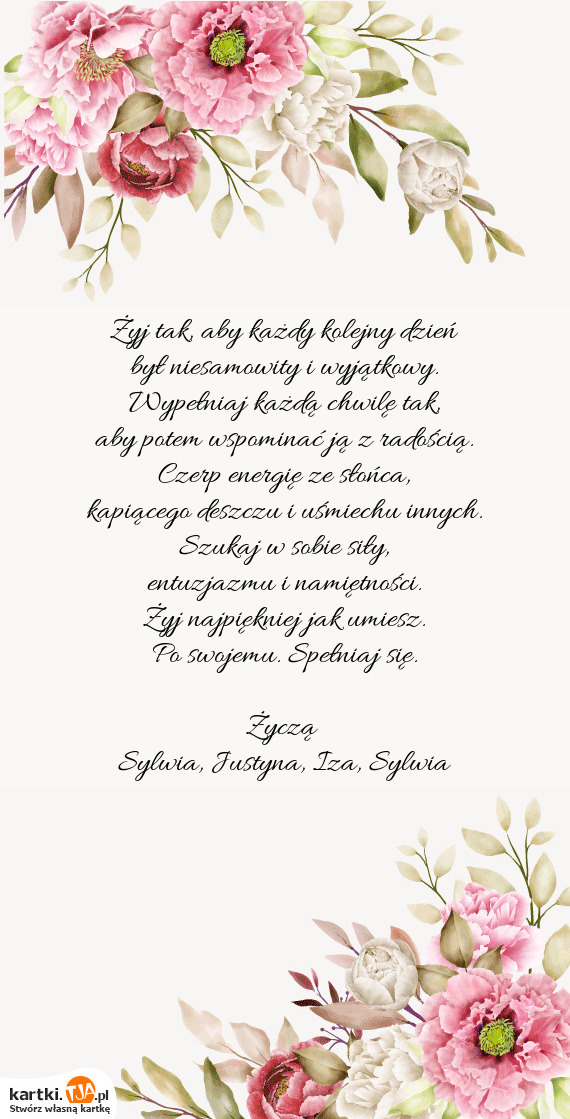 Żyj tak, aby każdy kolejny dzień
był niesamowity i wyjątkowy.
Wypełniaj każdą chwilę tak,
aby potem wspominać ją z radością.
Czerp energię ze słońca,
kapiącego deszczu i uśmiechu innych.
Szukaj w sobie siły,
entuzjazmu i namiętności.
Żyj najpiękniej jak umiesz.
Po swojemu. Spełniaj się.
Życzą
Sylwia, Justyna, Iza, Sylwia
kartki.TJA.pl
Stwórz własną kartkę